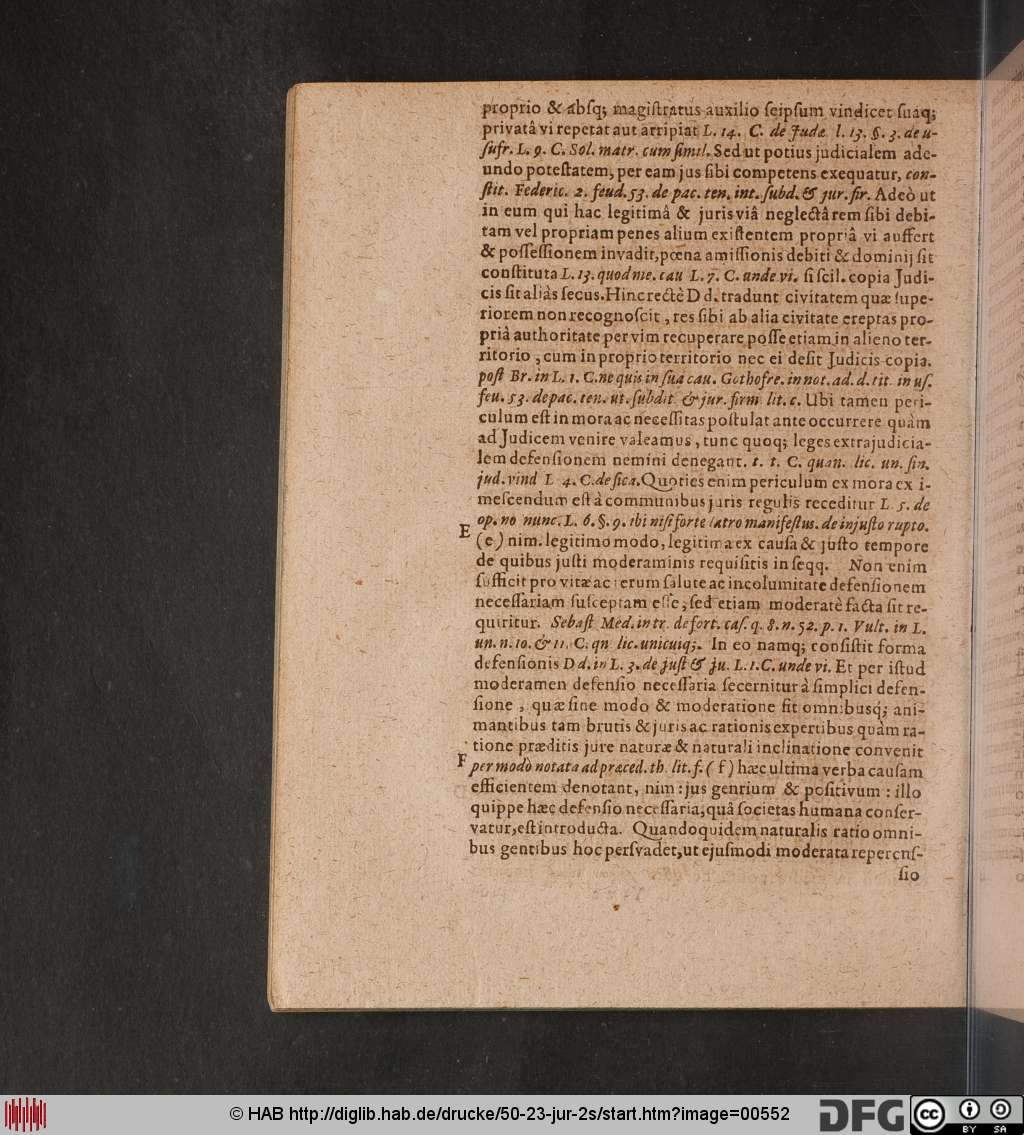 proprio & absq; magiſtratus auxilio ſeipſum vindicet ſuaq;
privatâ vi repetat aut arripiat L. 14. C. de Judæ l. 13. §. 3. de u-
ſufr. L. 9. C. Sol. matr. cum ſimil. Sed ut potius judicialem ade-
undo poteſtatem, per eam jus ſibi competens exequatur, con-
ſtit. Federic. 2. feud. 53. de pac. ten. int. ſubd. & jur. fir. Adeò ut
in eum qui hac legitimâ & juris viâ neglectâ rem ſibi debi-
tam vel propriam penes alium exiſtentem propriâ vi auffert
& poſſeſſionem invadit, pœna amiſſionis debiti & dominij ſit
conſtituta L. 13. quod me. cau L. 7. C. unde vi. ſi ſcil. copia Judi-
cis ſit aliàs ſecus. Hinc rectè Dd. tradunt civitatem quæ ſupe-
riorem non recognoſcit, res ſibi ab alia civitate ereptas pro-
priâ authoritate per vim recuperare poſſe etiam in alieno ter-
ritorio, cum in proprio territorio nec ei deſit Judicis copia.
poſt Br. in L. 1. C. ne quis in ſua cau. Gothofre. in not. ad. d. tit. in uſ.
feu. 53. de pac. ten. ut. ſubdit & jur. firm lit. c. Ubi tamen peri-
culum eſt in mora ac neceſſitas poſtulat ante occurrere quàm
ad Judicem venire valeamus, tunc quoq; leges extrajudicia-
lem defenſionem nemini denegant. t. t. C. quan. lic. un. ſin.
jud. vind L 4. C. de ſica. Quoties enim periculum ex mora ex i-
meſcendum eſt à communibus juris regulis receditur L. 5. de
op. no nunc. L. 6. §. 9. ibi niſi forte latro manifeſtus. de injuſto rupto.
E
(e) nim. legitimo modo, legitima ex cauſa & juſto tempore
de quibus juſti moderaminis requiſitis in ſeqq. Non enim
ſufficit pro vitæ ac rerum ſalute ac incolumitate defenſionem
neceſſariam ſuſceptam eſſe, ſed etiam moderatè facta ſit re-
quiritur. Sebaſt Med. in tr. de fort. caſ. q. 8. n. 52. p. 1. Vult. in L.
un. n. 10. & 11. C. qn lic. unicuiq;. In eo namq; conſiſtit forma
defenſionis Dd. in L. 3. de juſt & ju. L. 1. C. unde vi. Et per iſtud
moderamen defenſio neceſſaria ſecernitur à ſimplici defen-
ſione, quæ ſine modo & moderatione fit omnibusq; ani-
mantibus tam brutis & juris ac rationis expertibus quàm ra-
tione præditis jure naturæ & naturali inclinatione convenit
F
per modò notata ad præced. th. lit. f. (f) hæc ultima verba cauſam
efficientem denotant, nim: jus gentium & poſitivum: illo
quippe hæc defenſio neceſſaria, quâ ſocietas humana conſer-
vatur, eſt introducta. Quandoquidem naturalis ratio omni-
bus gentibus hoc perſvadet, ut ejuſmodi moderata repercuſ-
ſio
© HAB http://diglib.hab.de/drucke/50-23-jur-2s/start.htm?image=00552
DFG
cc BY SA